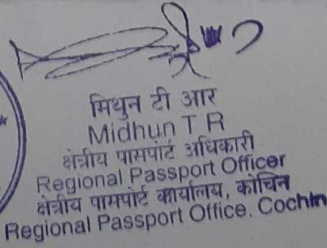 मिथुन टी आर
Midhun T R
क्षेत्रीय पासपोर्ट अधिकारी
Regional Passport Officer
क्षेत्रीय पासपोर्ट कार्यालय, कोचिन
Regional Passport Office, Cochin